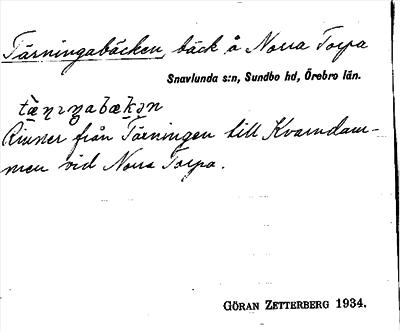 Tärningabäcken, bäck å Norra Torpa
Snavlunda s:n, Sundbo hd, Örebro län.
tæ̀ṇıŋabækən
Rinner från Tärningen till Kvarndam-
men vid Norra Torpa.
GÖRAN ZETTERBERG 1934.